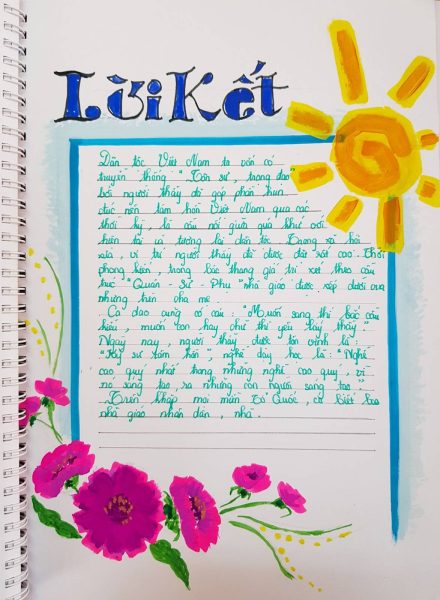 Lời Kết
Dân tộc Việt Nam ta vốn có
truyền thống "Tôn sư, trọng đạo"
bởi người thầy đã góp phần hun
đúc nên tâm hồn Việt Nam qua các
thời kỳ, là cầu nối giữa quá khứ với
hiện tại và tương lai dân tộc. Trong xã hội
xưa, vị trí người thầy đã được đặt rất cao. Thời
phong kiến, trong bậc thang giá trị xét theo cấu
trúc "Quân - Sư - Phụ" nhà giáo được xếp dưới vua
nhưng trên cha mẹ.
Ca dao cũng có câu: "Muốn sang thì bắc cầu
kiều, muốn con hay chữ thì yêu lấy thầy"
Ngày nay, người thầy được tôn vinh là:
"Kỹ sư tâm hồn", nghề dạy học là: "Nghề
cao quý nhất trong những nghề cao quý, vì
nó sáng tạo ra những con người sáng tạo"
Trên khắp mọi miền Tổ Quốc, có biết bao
nhà giáo nhân dân, nhà.